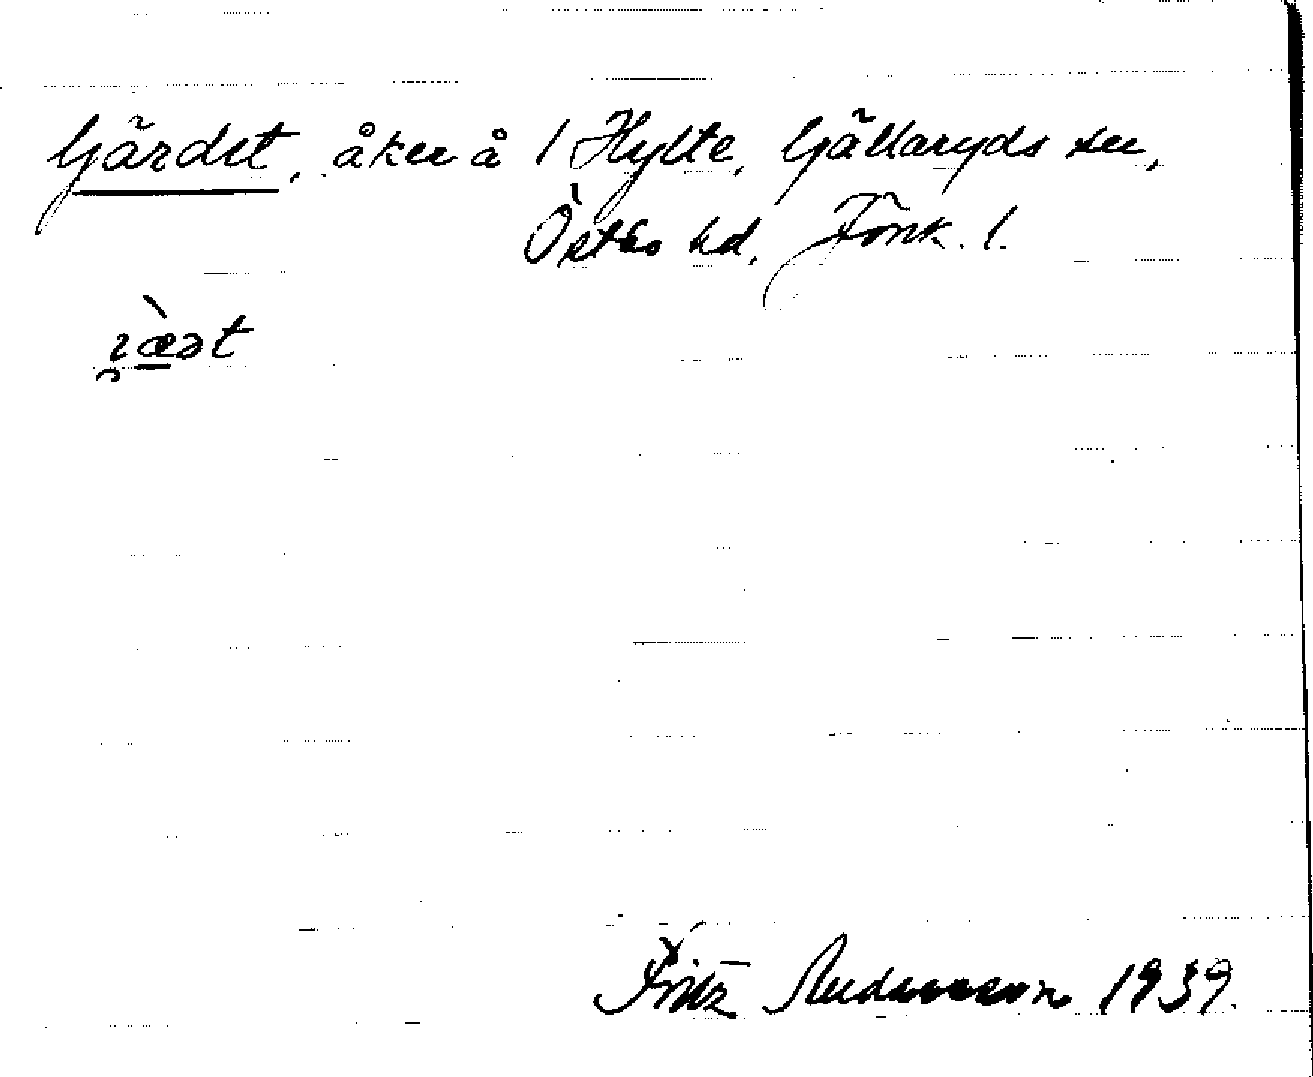 Gärdet, åker å 1 Hylte, Gällaryds sn,
Östbo hd, Jönk. l.
Fritz Andersson 1939.